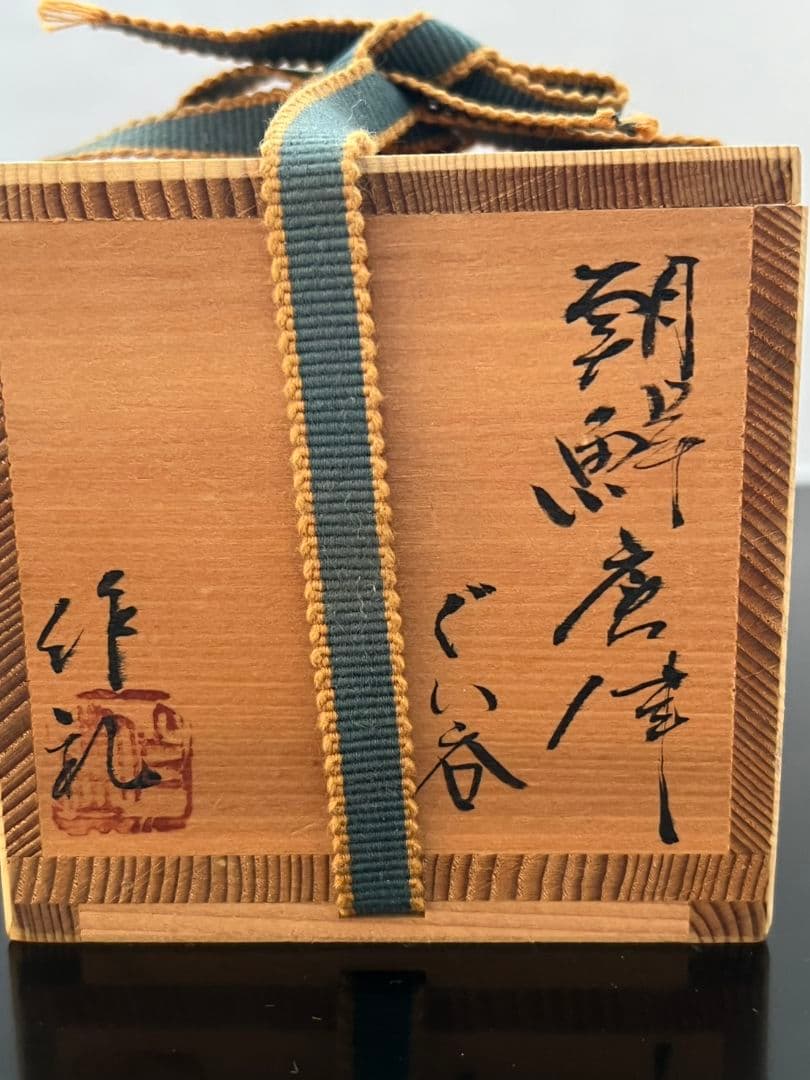 朝鮮唐津
ぐい呑
作礼